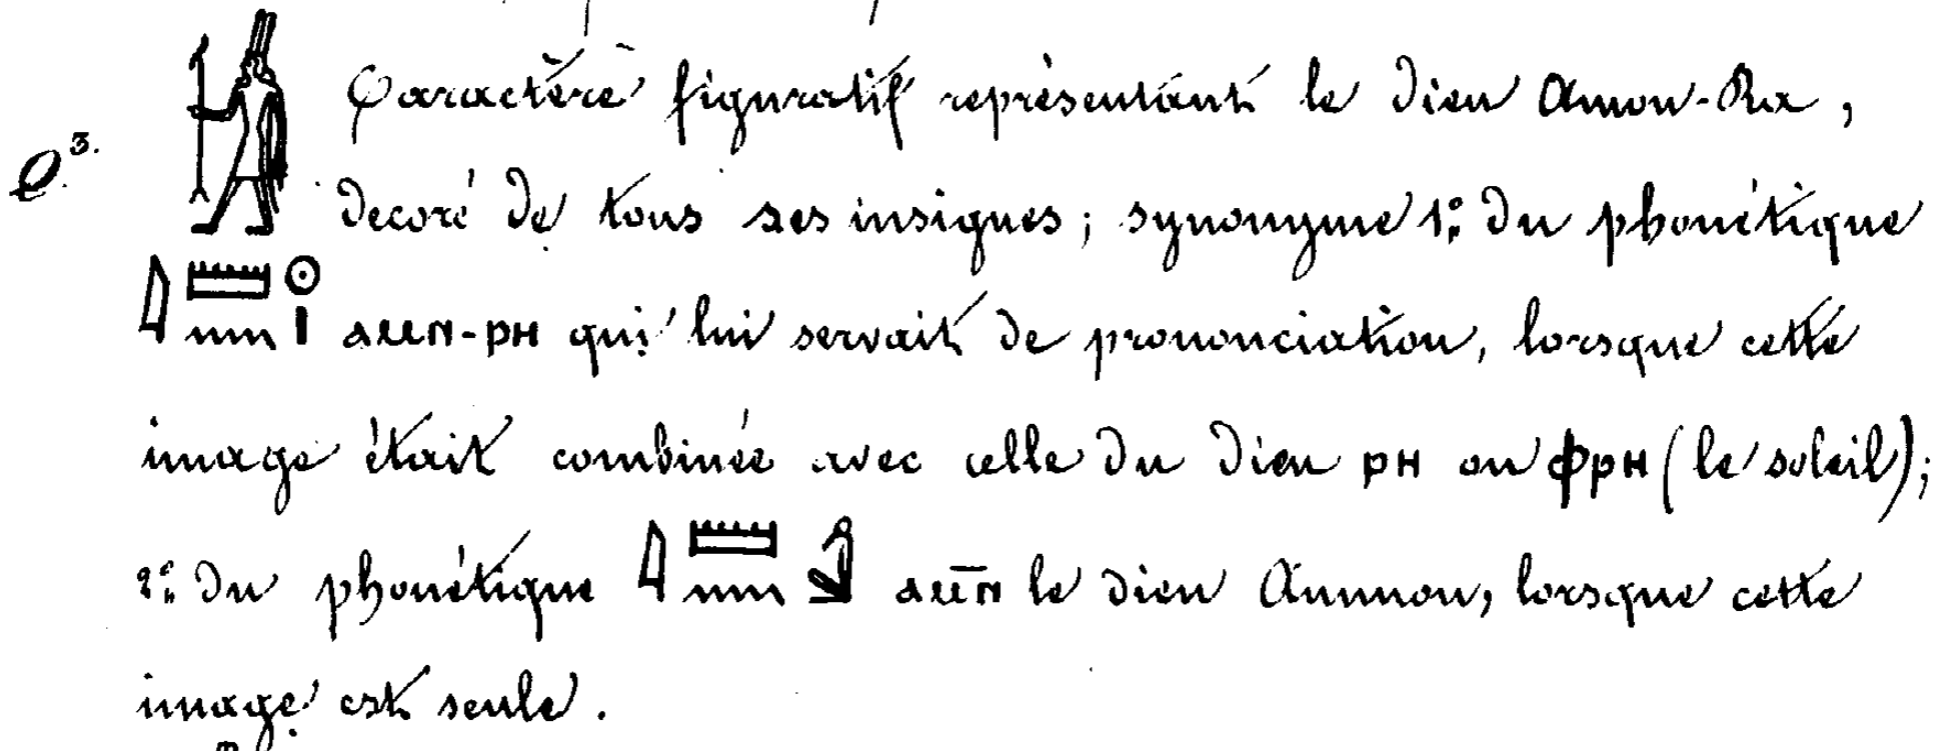 Caractère figuratif représentant le Dieu Amon-Ra,
Q³. décoré de tous ses insignes; synonyme 1° du phonétique
𓇋𓏠𓈖𓇳𓏤 ⲁⲙⲛ-ⲣⲏ qui lui servait de prononciation, lorsque cette
image était combinée avec celle du Dieu ⲣⲏ ou ⲫⲣⲏ (le soleil);
2° du phonétique 𓇋𓏠𓈖𓀭 ⲁⲙ̅ⲛ le dieu Ammon, lorsque cette
image est seule.